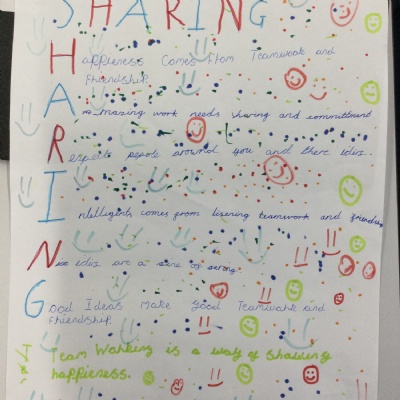 SHARING
Happieness Comes from Teamwork and
Friendship
Amazing work needs sharing and committment
Respects people around you and there idirs..
Intelligents comes from lisening teamwork and friendship
Nice idirs are a sine of strong
Good Ideas make good Teamwork and
Friendship
Team Working is a way of Shawing
happieness.